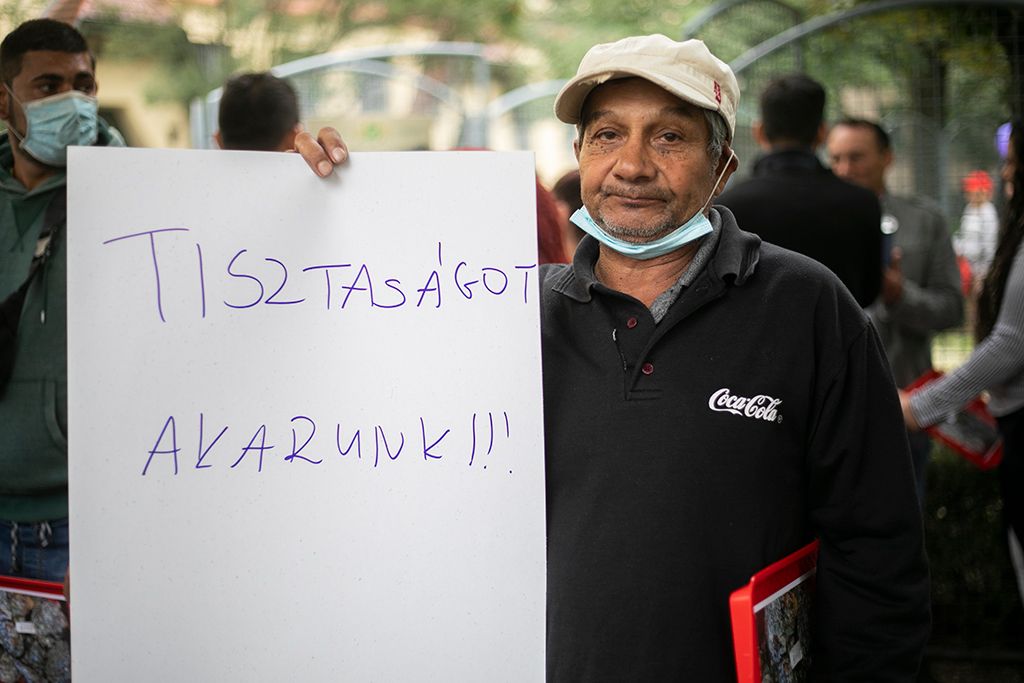 TISZTASÁGOT
AKARUNK!!!
Coca-Cola